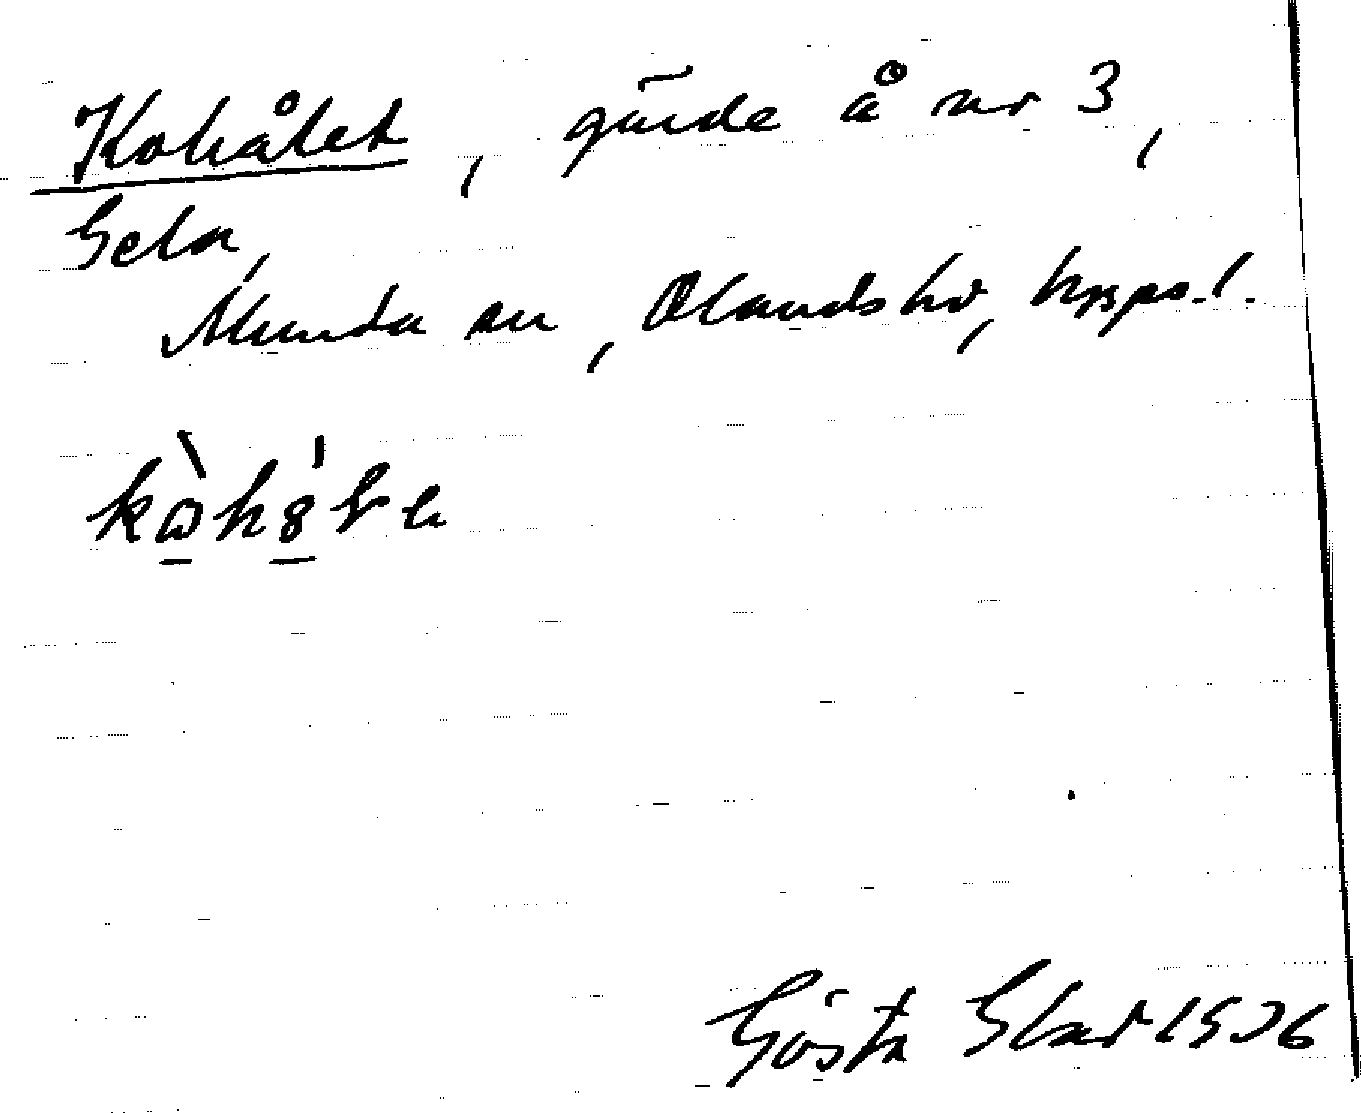 Kohålet, gärde å nr 3,
Gela,
Alunda sn, Olands hd, Upps. l.
Gösta Sbar 1936